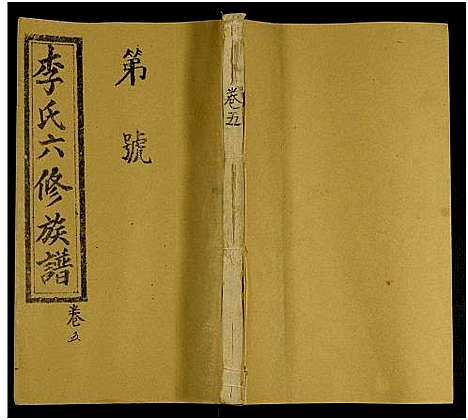 卷五
第 號
李氏六修族譜
卷五